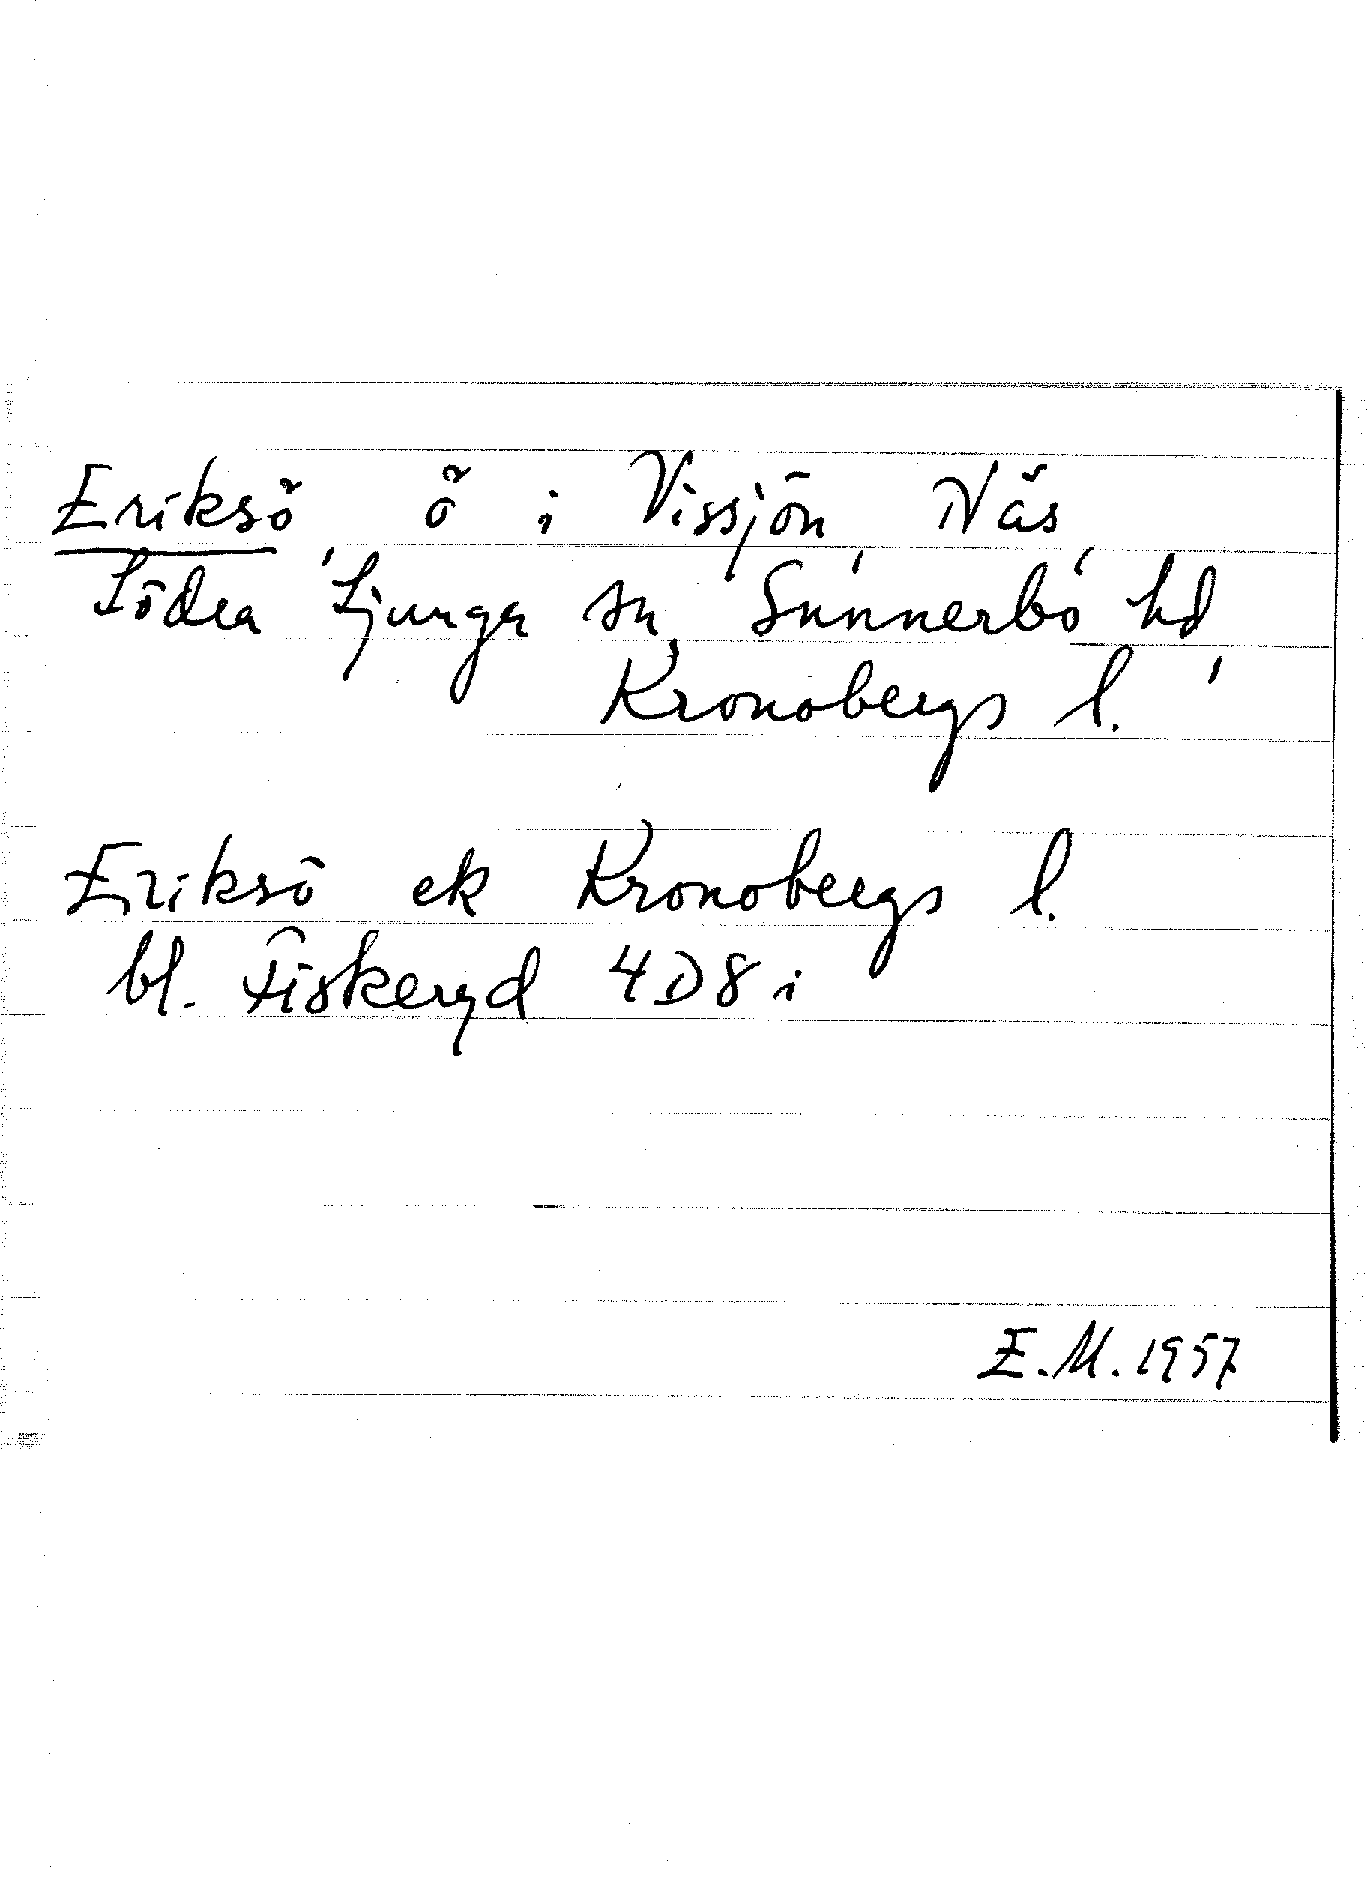 Eriksö, ö i Vissjön, Näs,
Södra Ljunga sn, Sunnerbo hd,
Kronobergs l.
Eriksö ek Kronobergs l.
bl. Fiskeryd 4D8i
E.M. 1957